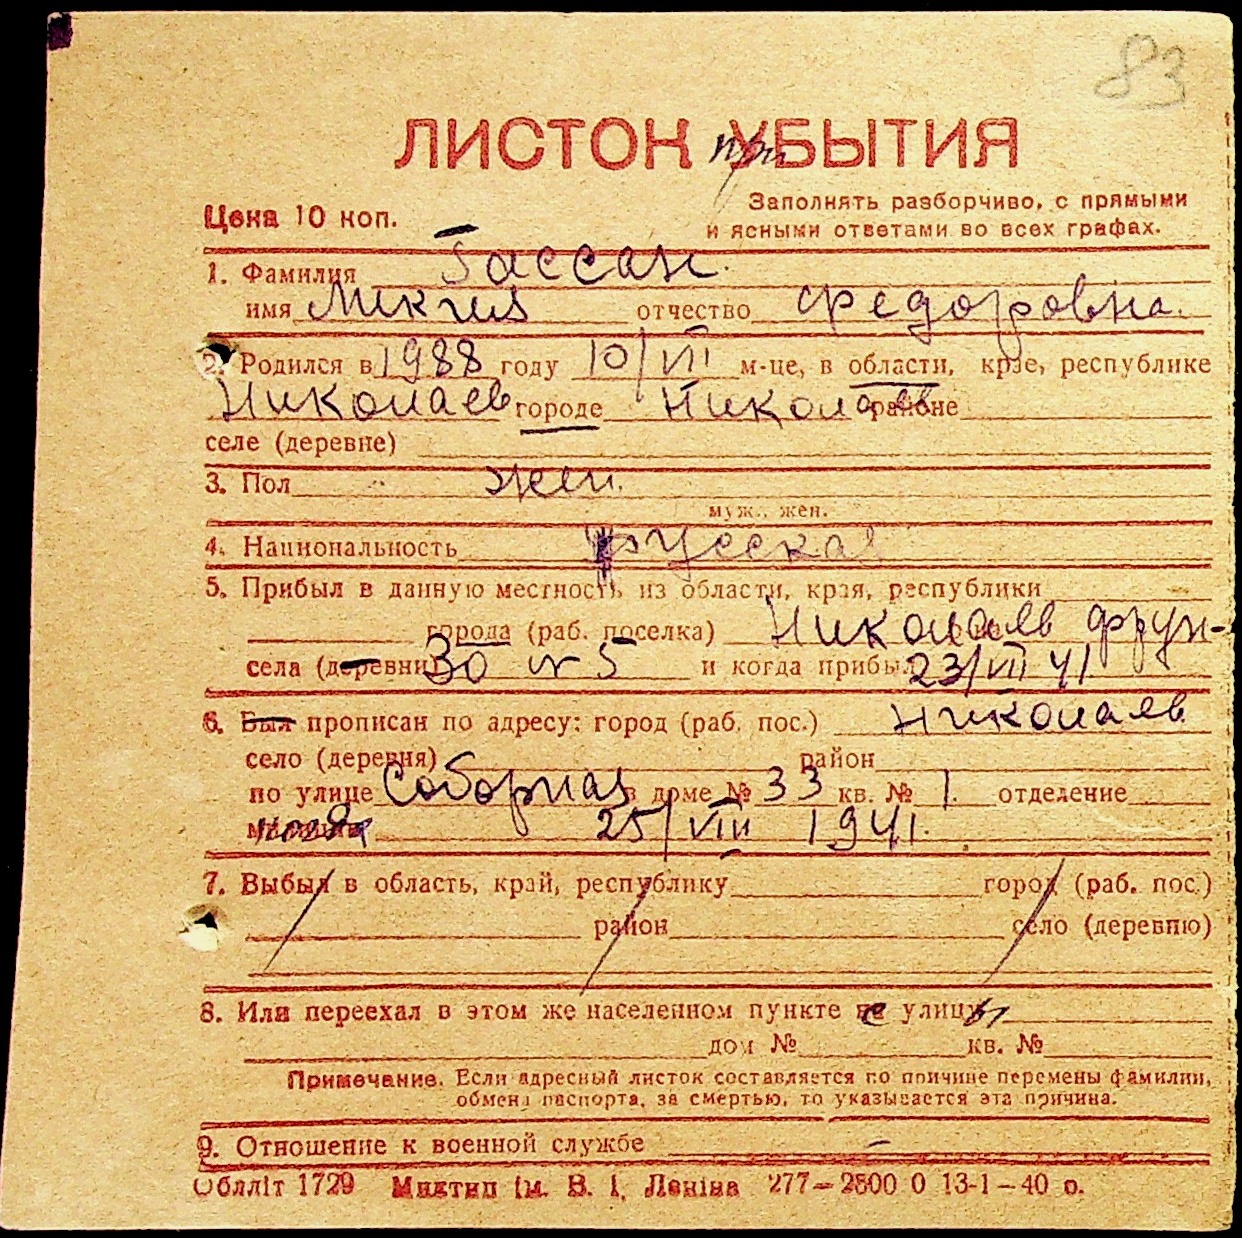 83
ЛИСТОК при УБЫТИЯ
Цена 10 коп.
Заполнять разборчиво, с прямыми
и ясными ответами во всех графах.
1. Фамилия Гассан.
имя отчество Федоровна.
2. Родился в 1988 году 10/VII м-це, в области, крае, республике
Николаев городе Николаев районе
селе (деревне)
3. Пол жен.
муж., жен.
4. Национальность русская
5. Прибыл в данную местность из области, края, республики
города (раб. поселка) Николаев Фрун-
села (деревни) 30 кв 5 и когда прибыл 23/VII 41.
6. Был прописан по адресу: город (раб. пос.) Николаев
село (деревня) район
по улице Соборная в доме № 33 кв. № 1. отделение
25/VIII 1941.
7. Выбыл в область, край, республику город (раб. пос.)
район село (деревню)
8. Или переехал в этом же населенном пункте с улицы
дом № кв. №
Примечание. Если адресный листок составляется по причине перемены фамилии,
обмена паспорта, за смертью, то указывается эта причина.
9. Отношение к военной службе –
Обліт 1729 Миктип ім. В. І. Леніна 277—2800 0 13-1—40 р.